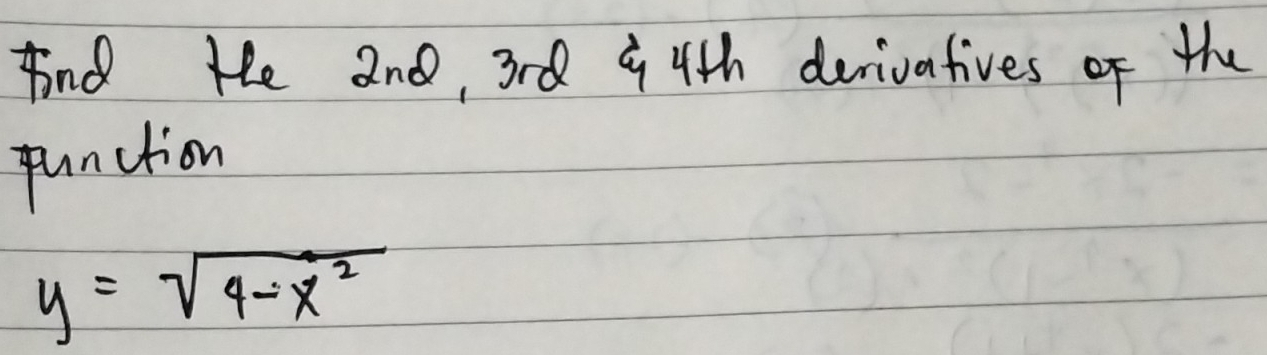 Find the 2nd, 3rd & 4th derivatives of the
function
y = √4-x²